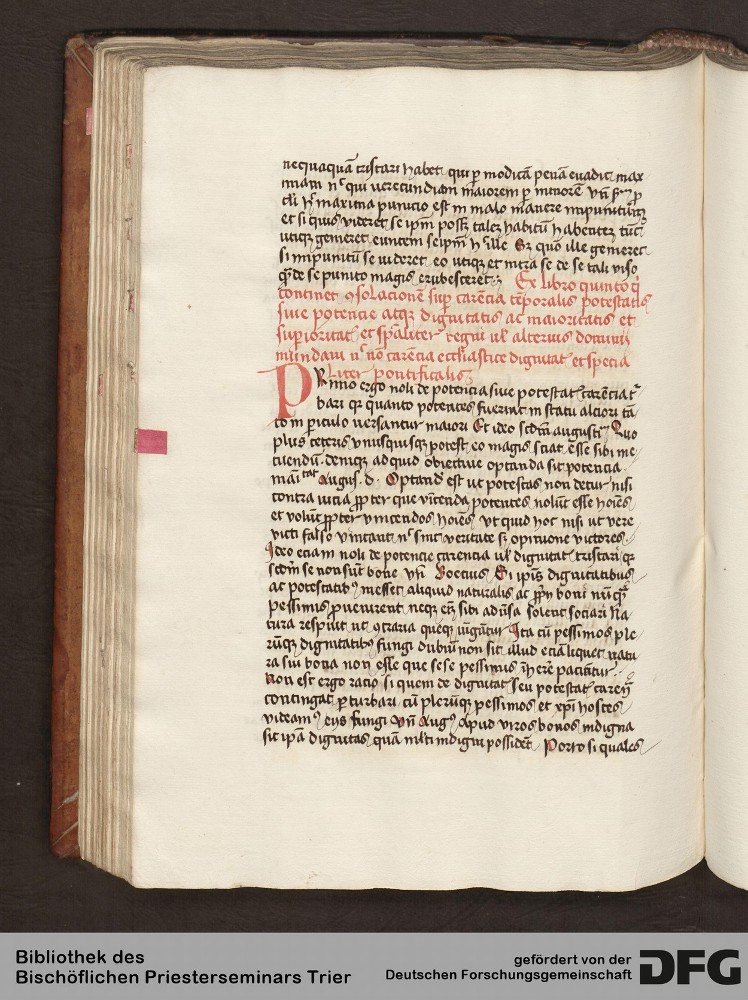 nequaquā tristari habet qui ꝑ modicā penā euadit max
imam nͨ qui uerecundiam maiorem ꝑ minorē Vn̄
maxima punicio est in malo manere impunitū
et si quis videret se ip̄m postꝫ talē habitū habentē tūc
utiqꝫ gemeret euntem seip̄m ille Ex quo ille gemeret
si impunitū se uideret eo utiqꝫ et intra se de se tali viso
qđ de se punito magis erubesceret Ex libro quinto q̄
continet ꝯsolacionē suꝑ carēcia tēporalis potestatis
siue potencie atqꝫ dignitatis ac maioritatis et
suꝑioritat et sp̄aliter regni ul̄ alterius dominij
mundani nͨ nō carēcia eccl̄iastice dignitat et specia
liter pontificalis
Primo ergo noli de potencia siue potestat carēcia t
bari qꝛ quanto potentes fuerint in statu alciori tā
to in ꝑiculo uersantur maiori Et ideo scd̄m augustī Quo
plus ceteris vnusquisqꝫ potest eo magis sciat esse sibi me
tuendū. deniqꝫ ad quid obiectiue optanda sit potencia
Augus. d. Optand est ut potestas non detur nisi
contra iusticia ꝓpter que vīcenda potentes nolūt esse hoīes
et volūt ꝓpter vincendos hoīes Vt quid hoc nisi ut vere
victi falso vincant nͨ sint veritate sꝫ opinione victores
Ideo eciam noli de potencie carencia ul̄ dignitat tristari qꝛ
scd̄m se non sūt bone vn̄ Boecius Si ip̄is dignitatibus
ac potestatibꝫ inesset aliquid naturalis ac ꝓprij boni nūqͣ
pessimis ꝓuenirent neqꝫ en̄ sibi adūsa solent sociari Na
tura respuit ut ꝯtraria queqꝫ iūgātur Ita cū pessimos ple
rūqꝫ dignitatibꝫ fungi dubiū non sit illud eciā liquet natu
ra sui bona non esse que se se pessimis īherere paciātur.
Non est ergo racio si quem de dignitat seu potestat
contingat ꝑturbari cū plerūqꝫ pessimos et xp̄i hostes
videamꝰ eijs fungi vn̄ Augꝰ Apud viros bonos indigna
sit ip̄a dignitas quā ml̄ti indigni possidēt Porro si quales
Bibliothek des
Bischöflichen Priesterseminars Trier
gefördert von der
Deutschen Forschungsgemeinschaft
DFG